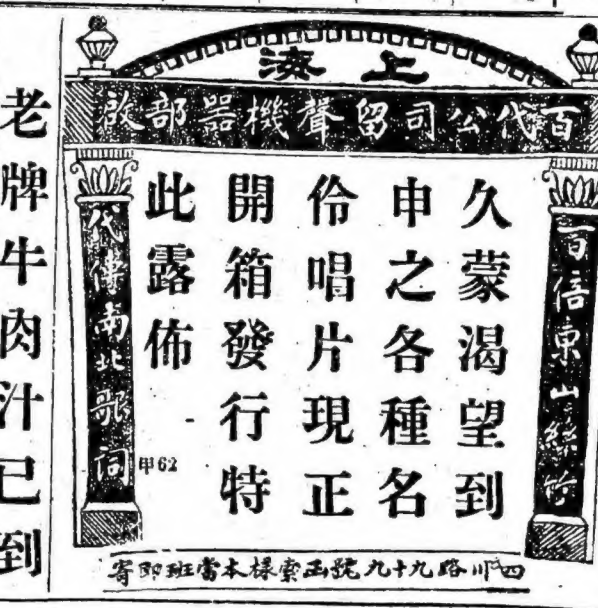 上海
百代公司留聲機器部啟
百倍東山絲竹
久蒙渴望到
申之各種名
伶唱片現正
開箱發行特
此露佈
甲62
代傳南北歌詞
四川路九十九號函索樣本當班即寄
老牌牛肉汁已到